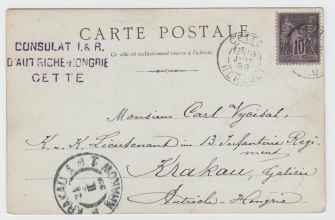 CARTE POSTALE
Ce côté est exclusivement réservé à l'adresse.
CONSULAT I. & R.
D'AUTRICHE-HONGRIE
CETTE
CETTE
HERAULT
10
Monsieur Carl
K. u. K. Lieutenant im B. Infanterie Regi-
ment
Krakau, Galicie
Autrich-Hongrie
KRAKAU